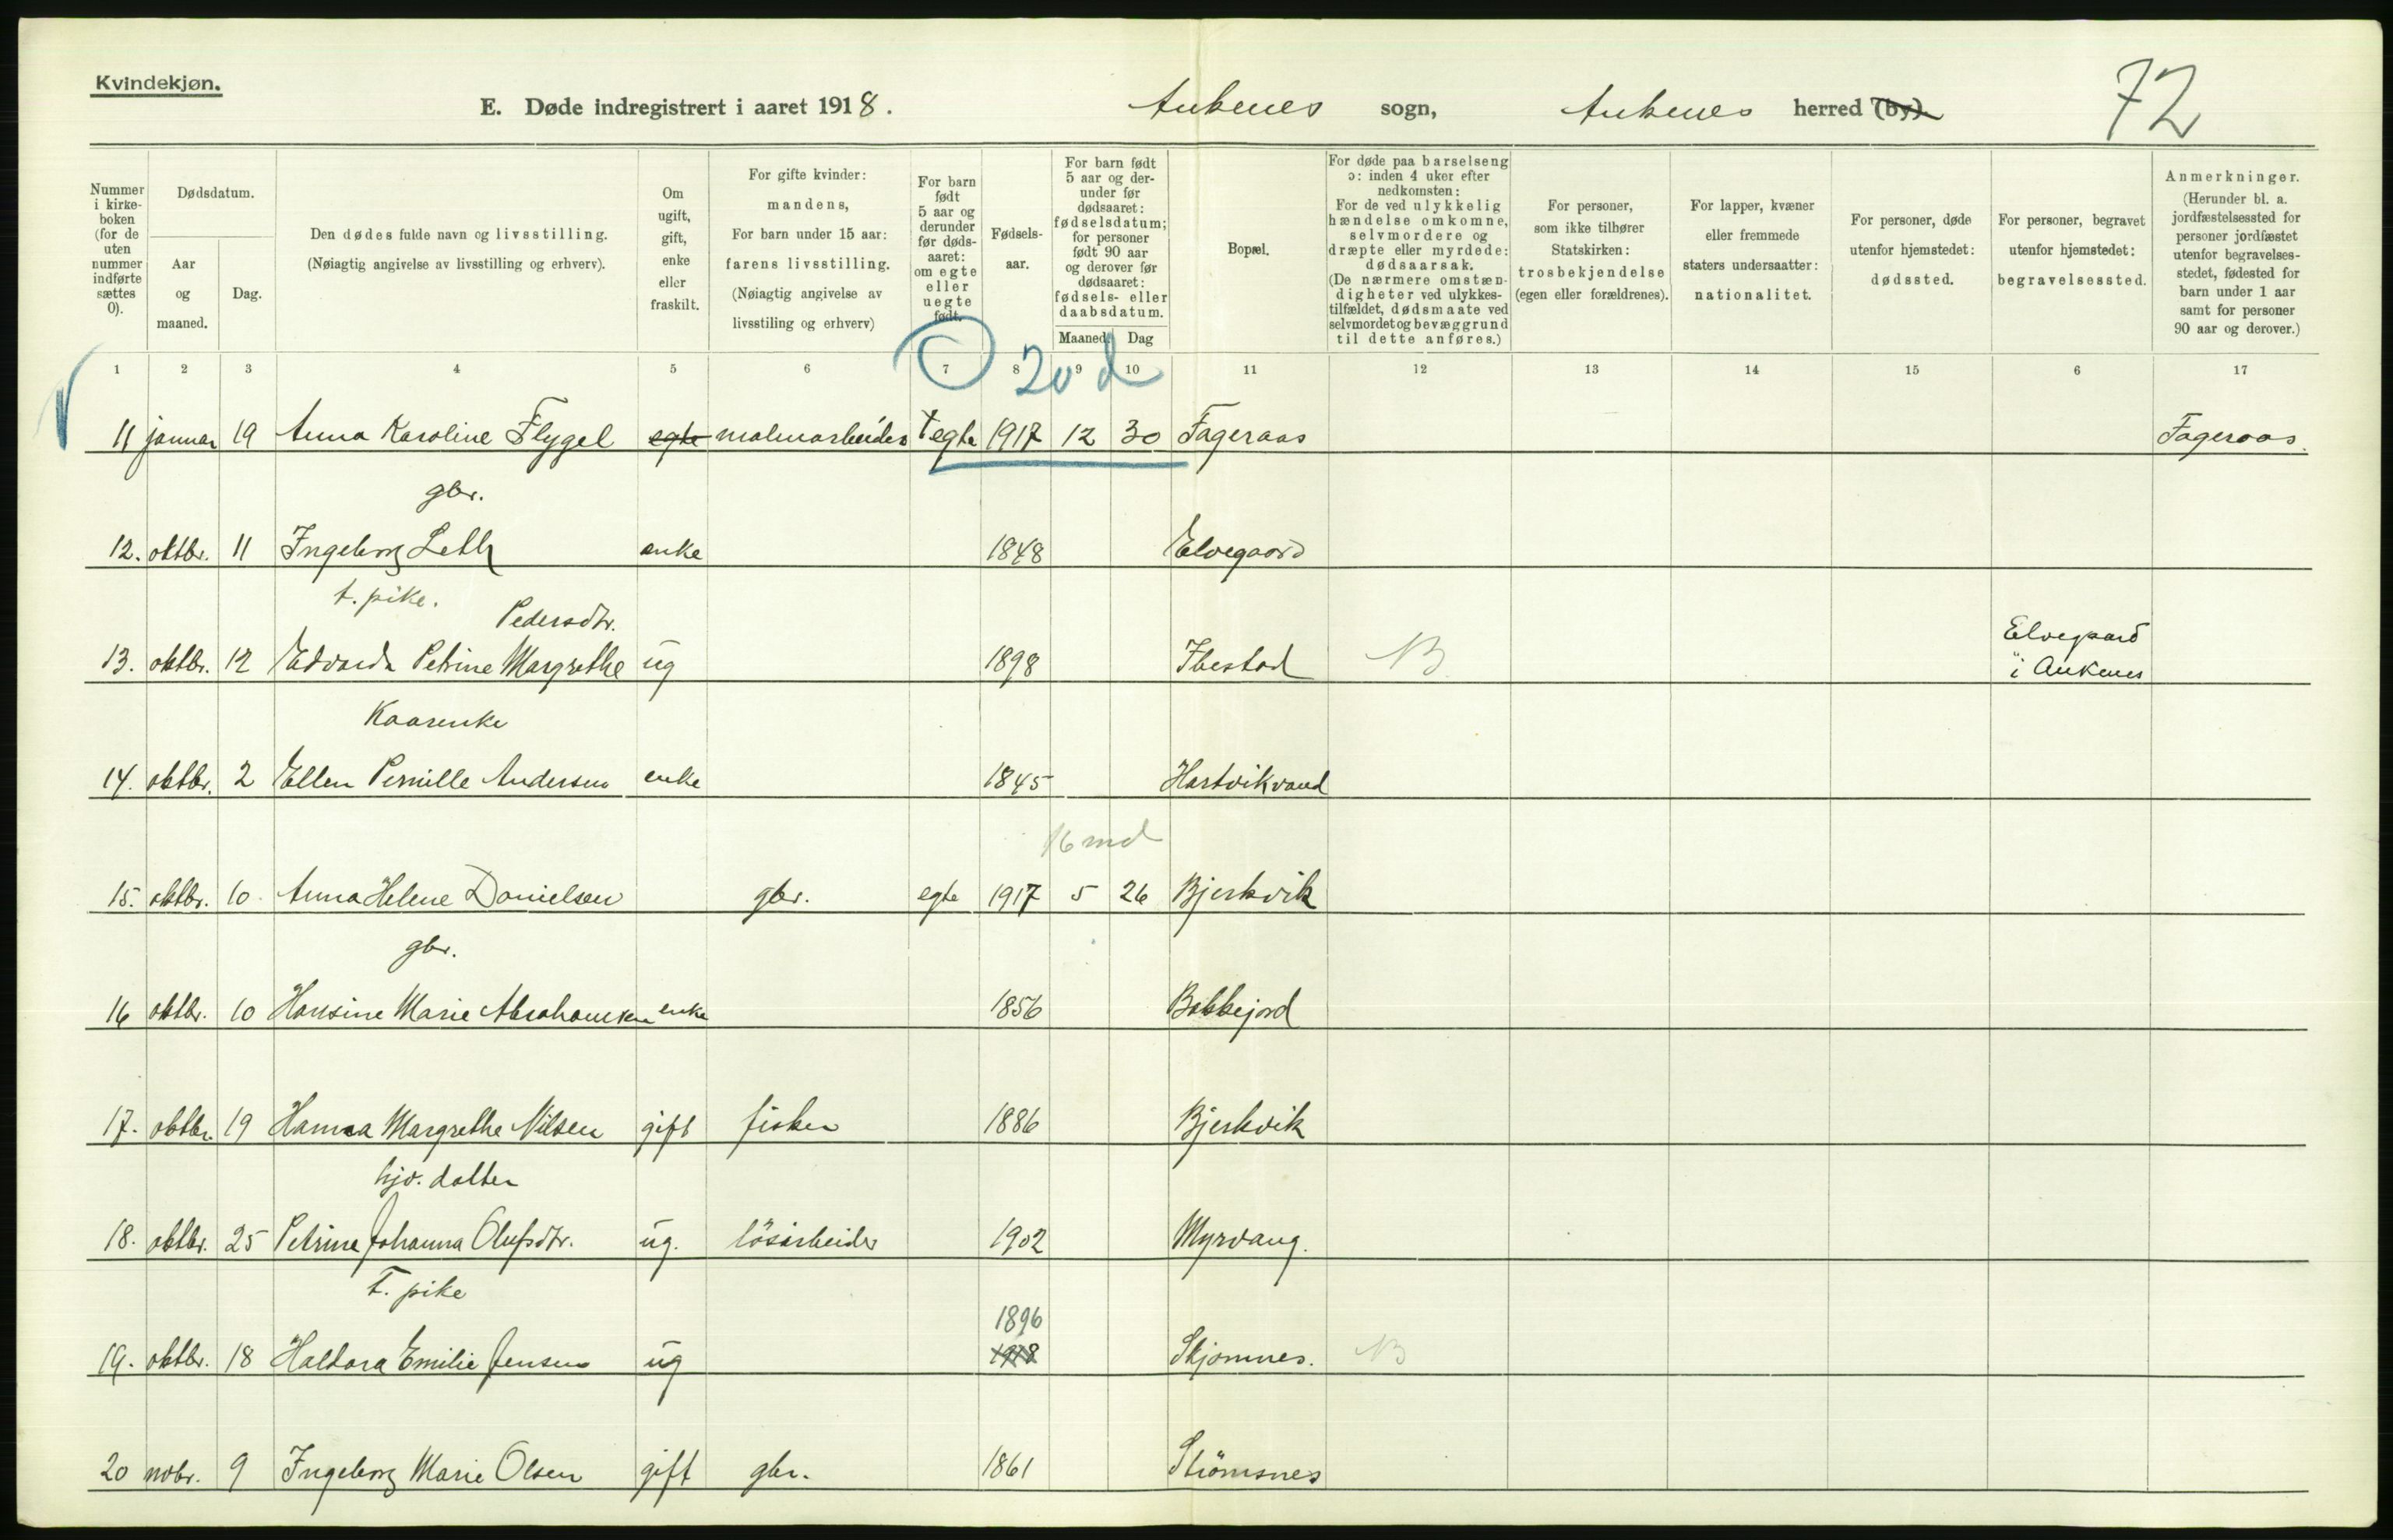 Kvindekjøn.
E. Døde indregistrert i aaret 1918. Ankenes sogn, Ankenes herred (by) 72
Nummer i kirke-boken (for de uten nummer indførte sættes 0).
Dødsdatum.
Aar og maaned.
Dag.
Den dødes fulde navn og livsstilling.
(Nøiagtig angivelse av livsstilling og erhverv).
Om ugift, gift, enke eller fraskilt.
For gifte kvinder: mandens,
For barn under 15 aar: farens livsstilling.
(Nøiagtig angivelse av livsstiling og erhverv)
For barn født 5 aar og derunder før døds-aaret: om egte eller uegte født.
Fødsels-aar.
For barn født 5 aar og der-under før dødsaaret: fødselsdatum; for personer født 90 aar og derover før dødsaaret: fødsels- eller daabsdatum.
Maaned. Dag
Bopæl.
For døde paa barselseng ɔ: inden 4 uker efter nedkomsten:
For de ved ulykkelig hændelse omkomne, selvmordere og dræpte eller myrdede: dødsaarsak.
(De nærmere omstæn-digheter ved ulykkes-tilfældet, dødsmaate ved selvmordet og bevæggrund til dette anføres.)
For personer, som ikke tilhører Statskirken: trosbekjendelse (egen eller forældrenes).
For lapper, kvæner eller fremmede staters undersaatter: nationalitet.
For personer, døde utenfor hjemstedet: dødssted.
For personer, begravet utenfor hjemstedet: begravelsessted.
Anmerkninger.
(Herunder bl. a. jordfæstelsessted for personer jordfæstet utenfor begravelses-stedet, fødested for barn under 1 aar samt for personer 90 aar og derover.)
1 2 3 4 5 6 7 8 9 10 11 12 13 14 15 6 17
20 d
11 januar 19 Anna Karoline Flygel egte malmarbeider egte 1917 12 30 Fageraas Fageraas.
gbr.
12. oktbr. 11 Ingeborg Leth enke 1848 Elvegaard
t. pike.
Pedersdtr.
13. oktbr. 12 Edvarda Petrine Margrethe ug 1898 Ibestad B Elvegaard i Ankenes
Kaarenke
14. oktbr. 2 Ellen Pernille Andersen enke 1845 Hartvikvand
16 md
15. oktbr. 10 Anna Helene Danielsen gbr. egte 1917 5 26 Bjerkvik
gbr.
16 oktbr. 10 Hansine Marie Abrahamsen enke 1856
17. oktbr. 19 Hanna Margrethe Nilsen gift fisker 1886 Bjerkvik
hjv. datter
18. oktbr. 25 Petrine Johanna Olufsdtr. ug. lösarbeider 1902 Myrvang.
T. pike
1896
19. oktbr. 18 Haldora Emilie Jensen ug 1918 Skjomnes. B
20 novbr. 9 Ingeborg Marie Olsen gift gbr. 1861 Strömsnes